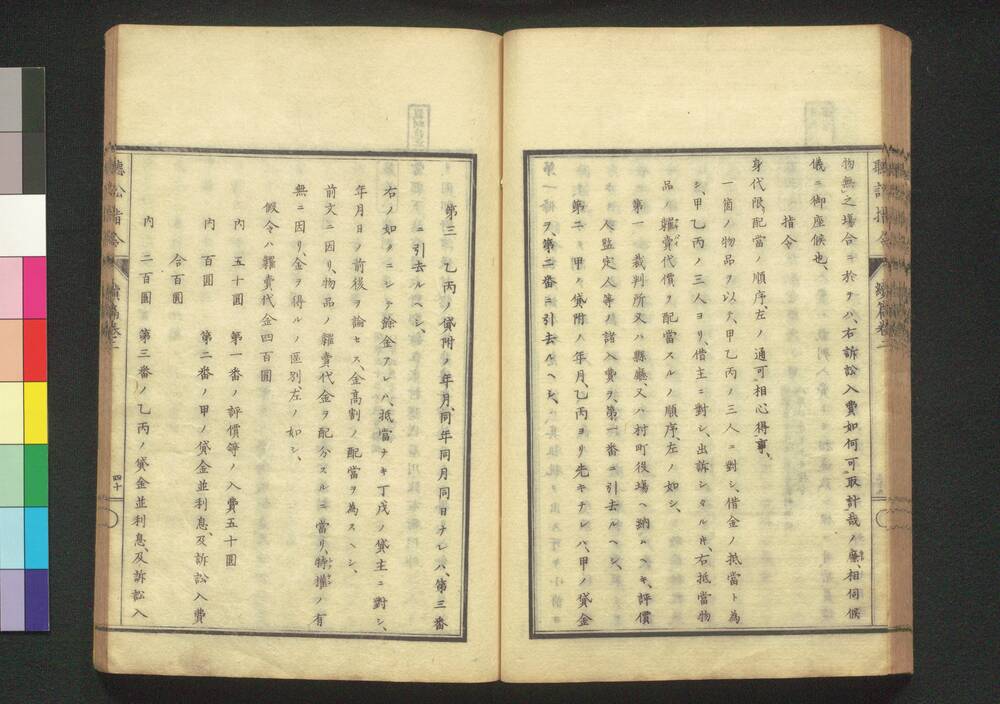 物無之場合ニ於テハ、右訴訟入費如何可取計哉ノ廉、相伺候
儀ニ御座候也、
指令
身代限、配當ノ順序、左ノ通可相心得事、
一箇ノ物品ヲ以テ、甲乙丙ノ三人ニ對シ、借金ノ抵當ト為
シ、甲乙丙ノ三人ヨリ、借主ニ對シ、出訴シタル片、右抵當物
品ノ糶賣代價ヲ配當スルノ順序、左ノ如シ、
第一 裁判所又ハ縣廳、又ハ村町役場ヘ納ムヘキ、評價
人監定人等ノ諸入費ヲ、第一番ニ引去ルヘシ、
第二 甲ノ貸附ノ年月、乙丙ヨリ先キナレハ、甲ノ貸金
ヲ、第二番ニ引去ルヘシ、
第三 乙丙ノ貸附ノ年月、同年同月同日ナレハ、第三番
ニ引去ルヘシ、
右ノ如クニシテ餘金アレハ、抵當ナキ丁戊ノ貸主ニ對シ、
年月日ノ前後ヲ論セス、金高割ノ配當ヲ為スヘシ、
前文ニ因リ、物品ノ糶賣代金ヲ配分スルニ當リ、特權ノ有
無ニ因リ、金ヲ得ルノ區別左ノ如シ、
假令ハ糶賣代金四百圓
內 五十圓 第一番ノ評價等ノ入費五十圓
內 百圓 第二番ノ甲ノ貸金並利息、及訴訟入費
合百圓
內 二百圓 第三番ノ乙丙ノ貸金並利息、及訴訟入
聽訟指令
續篇卷二
四十